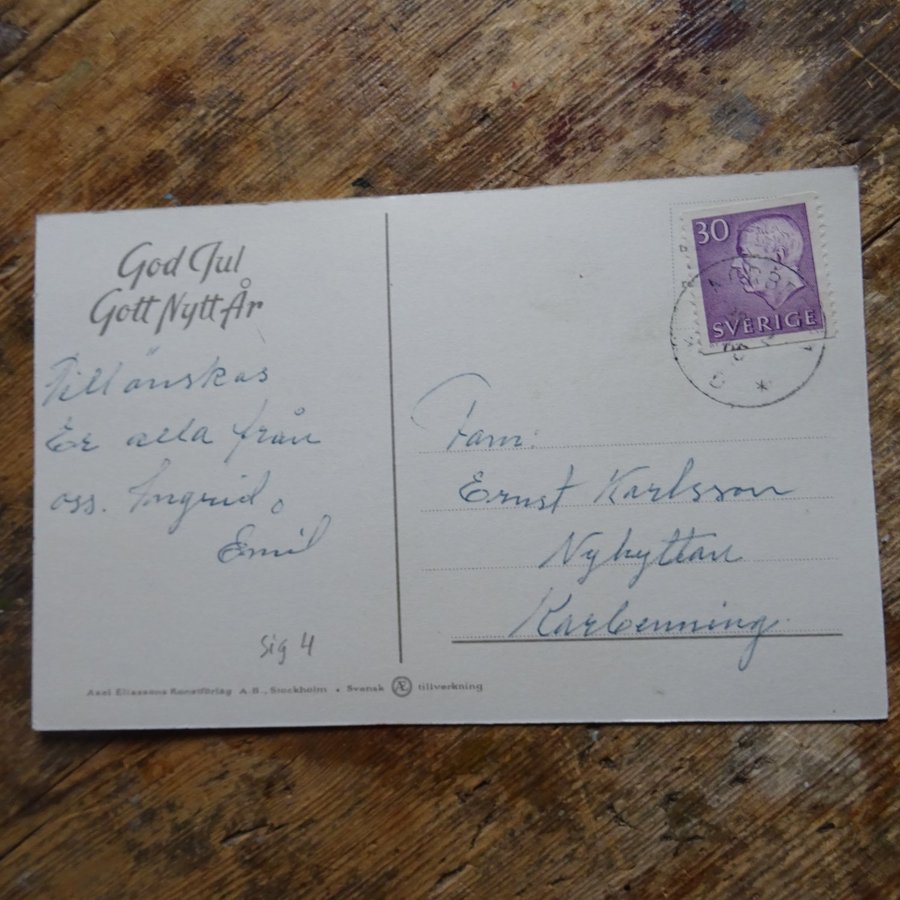 God Jul
Gott Nytt År
Tillönskas
Er alla från
oss. Ingrid o
Emil
sig 4
Axel Eliassons Konstförlag A.B., Stockholm • Svensk Æ tillverkning
30
SVERIGE
Fam.
Ernst Karlsson
Nyhyttan
Karbenning